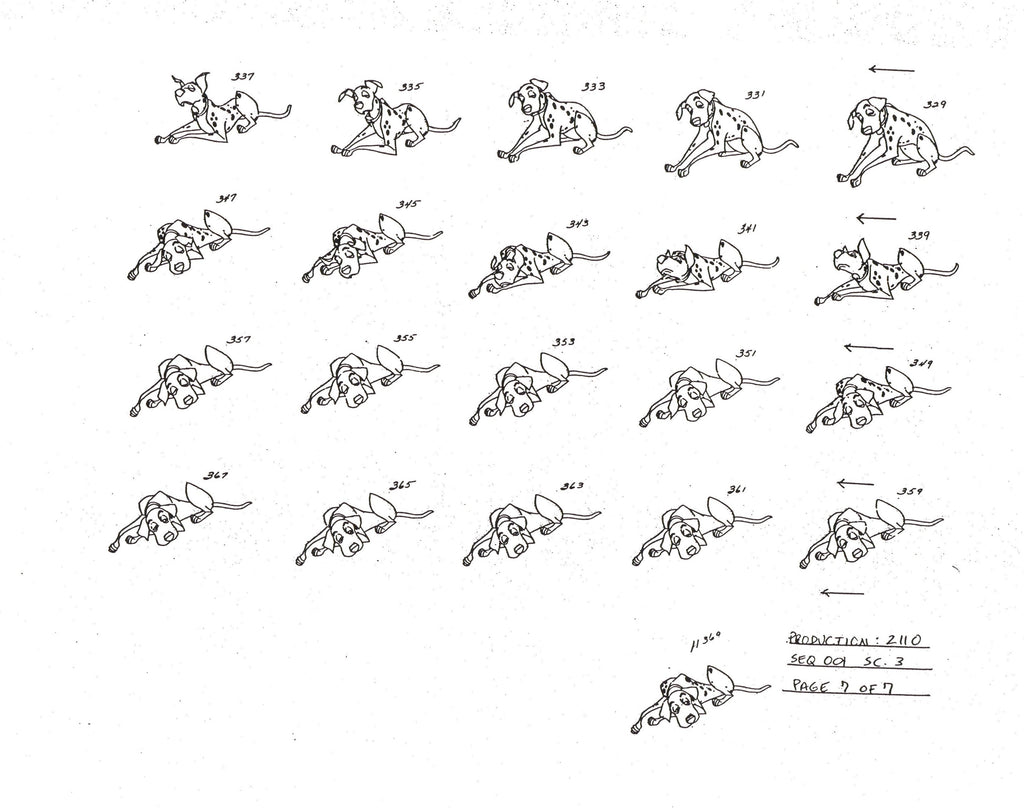 337 335 333 331 329
347 345 343 341 339
357 355 353 351 349
367 365 363 361 359
369
PRODUCTION: 2110
SEQ 001 SC. 3
PAGE 7 OF 7